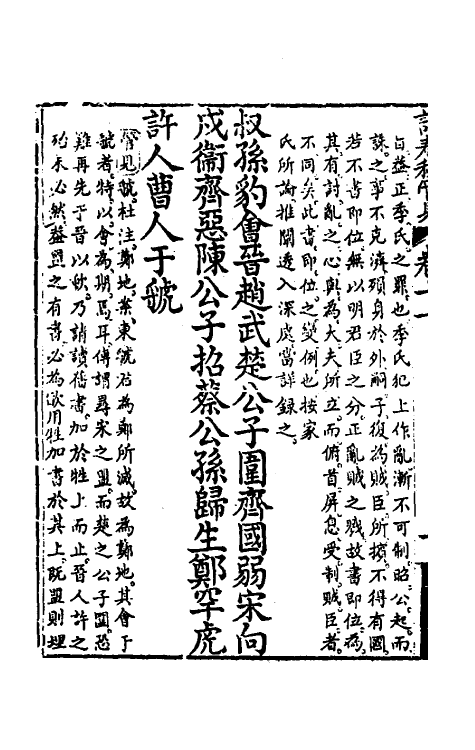 旨益正季氏之罪也季氏犯上作亂漸不可制昭公起而
誅之事不克濟殞身於外嗣子復為賊臣所擯不得有國
若不書即位無以明君臣之分正亂賊之戮故書即位為
其有討亂之心與為大夫所立而俯首屏息受制賊臣者
不同矣此書即位之變例也按家
氏所論推闡透入深處當詳錄之
叔孫豹會晉趙武楚公子圍齊國弱宋向
戌衞齊惡陳公子招蔡公孫歸生鄭罕虎
許人曹人于虢
管見虢杜注鄭地案東虢君為鄭所滅故為鄭地其會于
虢者特以會為期焉耳傳謂尋宋之盟而楚之公子圍恐
難再先于晉以歃乃請讀舊書加於牲上而止晉人許之
殆未必然蓋盟之有書必為歃用牲加書於其上既盟則埋